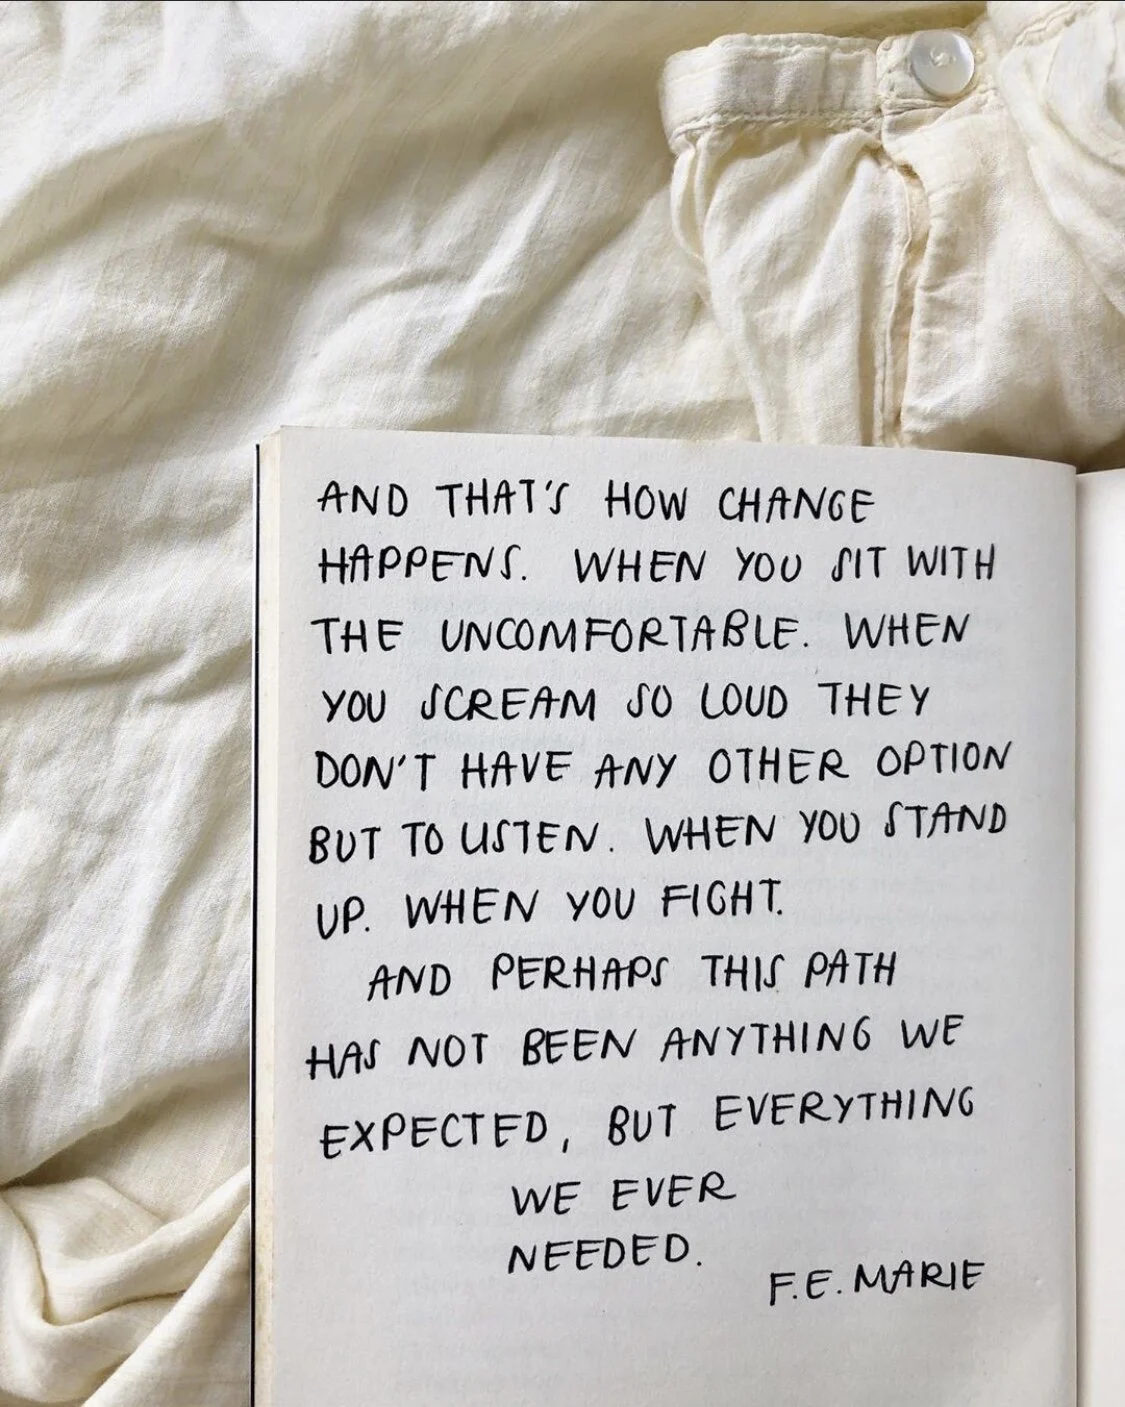 AND THAT'S HOW CHANGE
HAPPENS. WHEN YOU SIT WITH
THE UNCOMFORTABLE. WHEN
YOU SCREAM SO LOUD THEY
DON'T HAVE ANY OTHER OPTION
BUT TO LISTEN. WHEN YOU STAND
UP. WHEN YOU FIGHT.
AND PERHAPS THIS PATH
HAS NOT BEEN ANYTHING WE
EXPECTED, BUT EVERYTHING
WE EVER
NEEDED.
F.E. MARIE